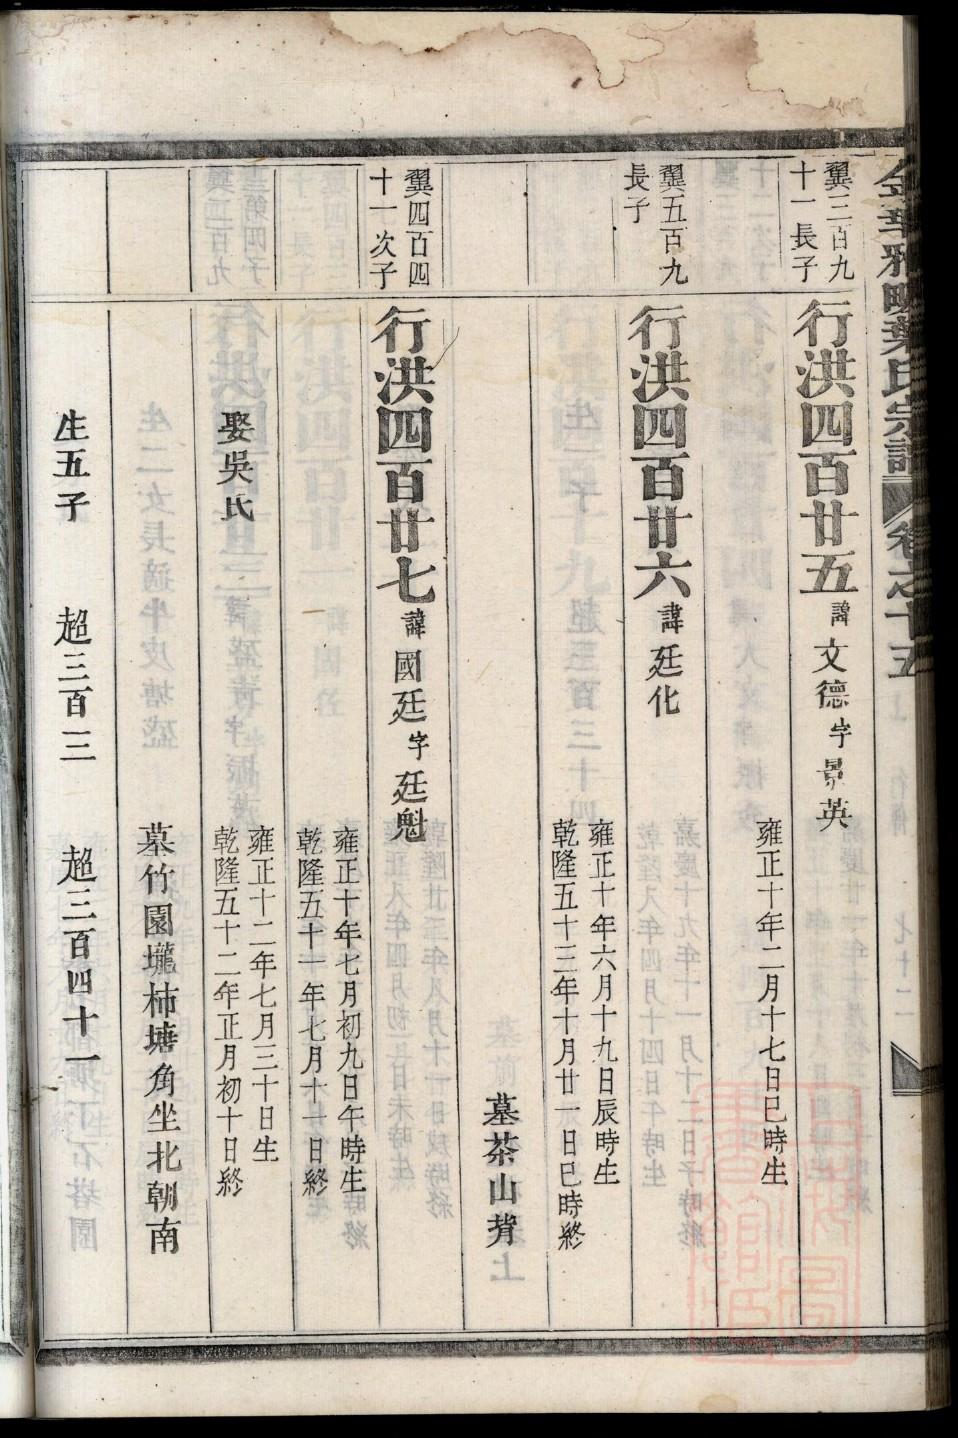 金華雅畈葉氏宗譜 卷之十五
翼三百九
十一長子
行洪四百廿五 諱文德字景英
雍正十年二月十七日巳時生
翼五百九
長子
行洪四百廿六 諱廷化
雍正十年六月十九日辰時生
乾隆五十三年十月廿一日巳時終
墓茶山背
翼四百四
十一次子
行洪四百廿七 諱國廷字廷魁
雍正十年七月初九日午時生
乾隆五十一年七月十一日終
娶吳氏
雍正十二年七月三十日生
乾隆五十二年正月初十日終
墓竹園壠柿塘角坐北朝南
生五子 超三百三 超三百四十一